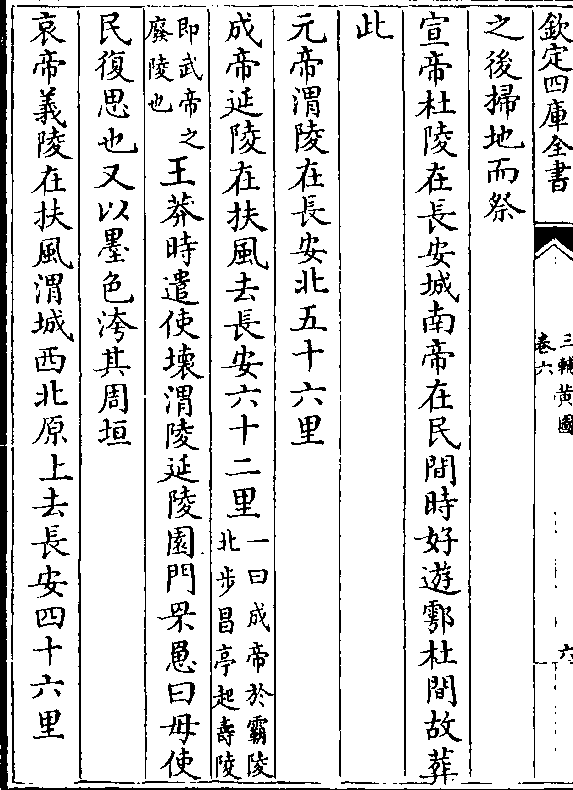 欽定四庫全書
三輔黃圖
卷六
六
之後掃地而祭
宣帝杜陵在長安城南帝在民間時好遊鄠杜間故葬
此
元帝渭陵在長安北五十六里
成帝延陵在扶風去長安六十二里一曰成帝於霸陵
北步昌亭起壽陵
即武帝之
廢陵也王莽時遣使壞渭陵延陵園門罘罳曰毋使
民復思也又以墨色洿其周垣
哀帝義陵在扶風渭城西北原上去長安四十六里